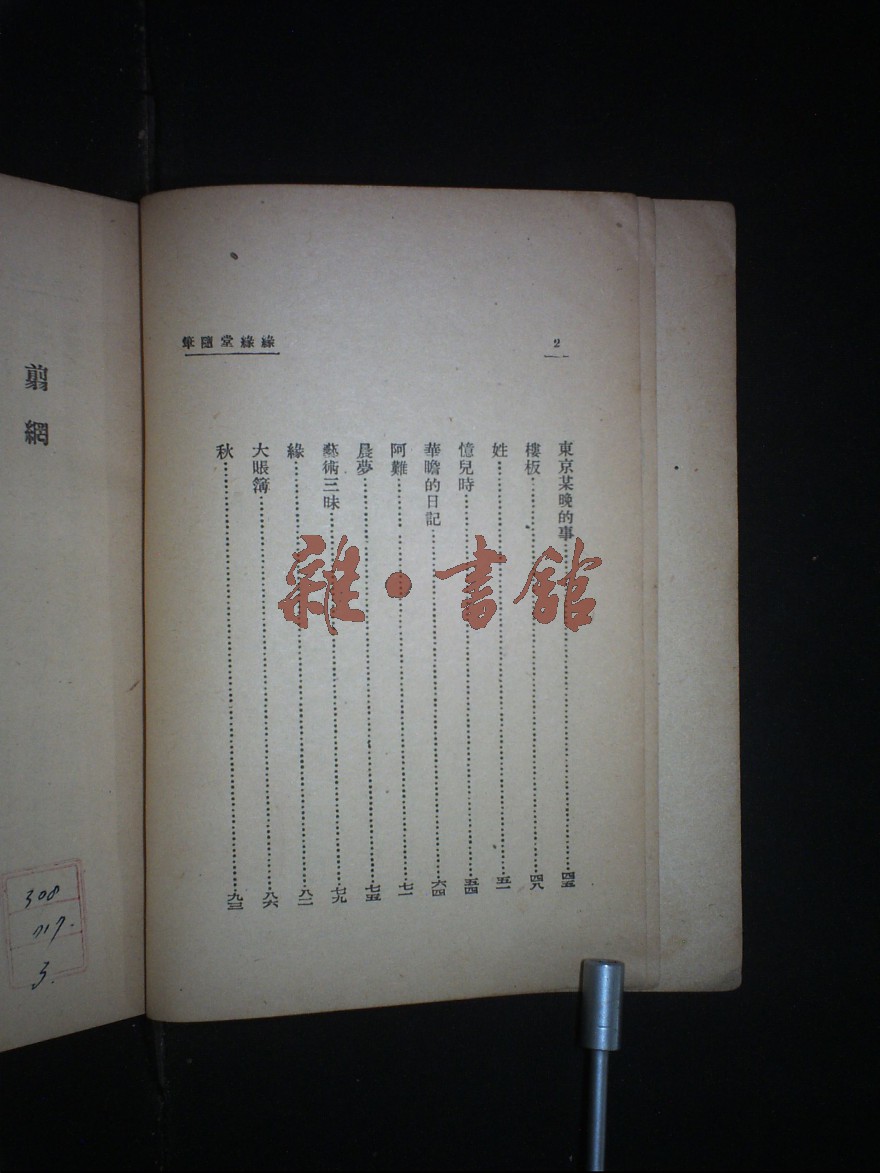 2
緣緣堂隨筆
東京某晚的事 四五
樓板 四八
姓 五一
憶兒時 五四
華瞻的日記 六四
阿難 七一
晨夢 七五
藝術三昧 七九
緣 八二
大賬簿 八六
秋 九三
翦網
308
717.
3.
雜·書館